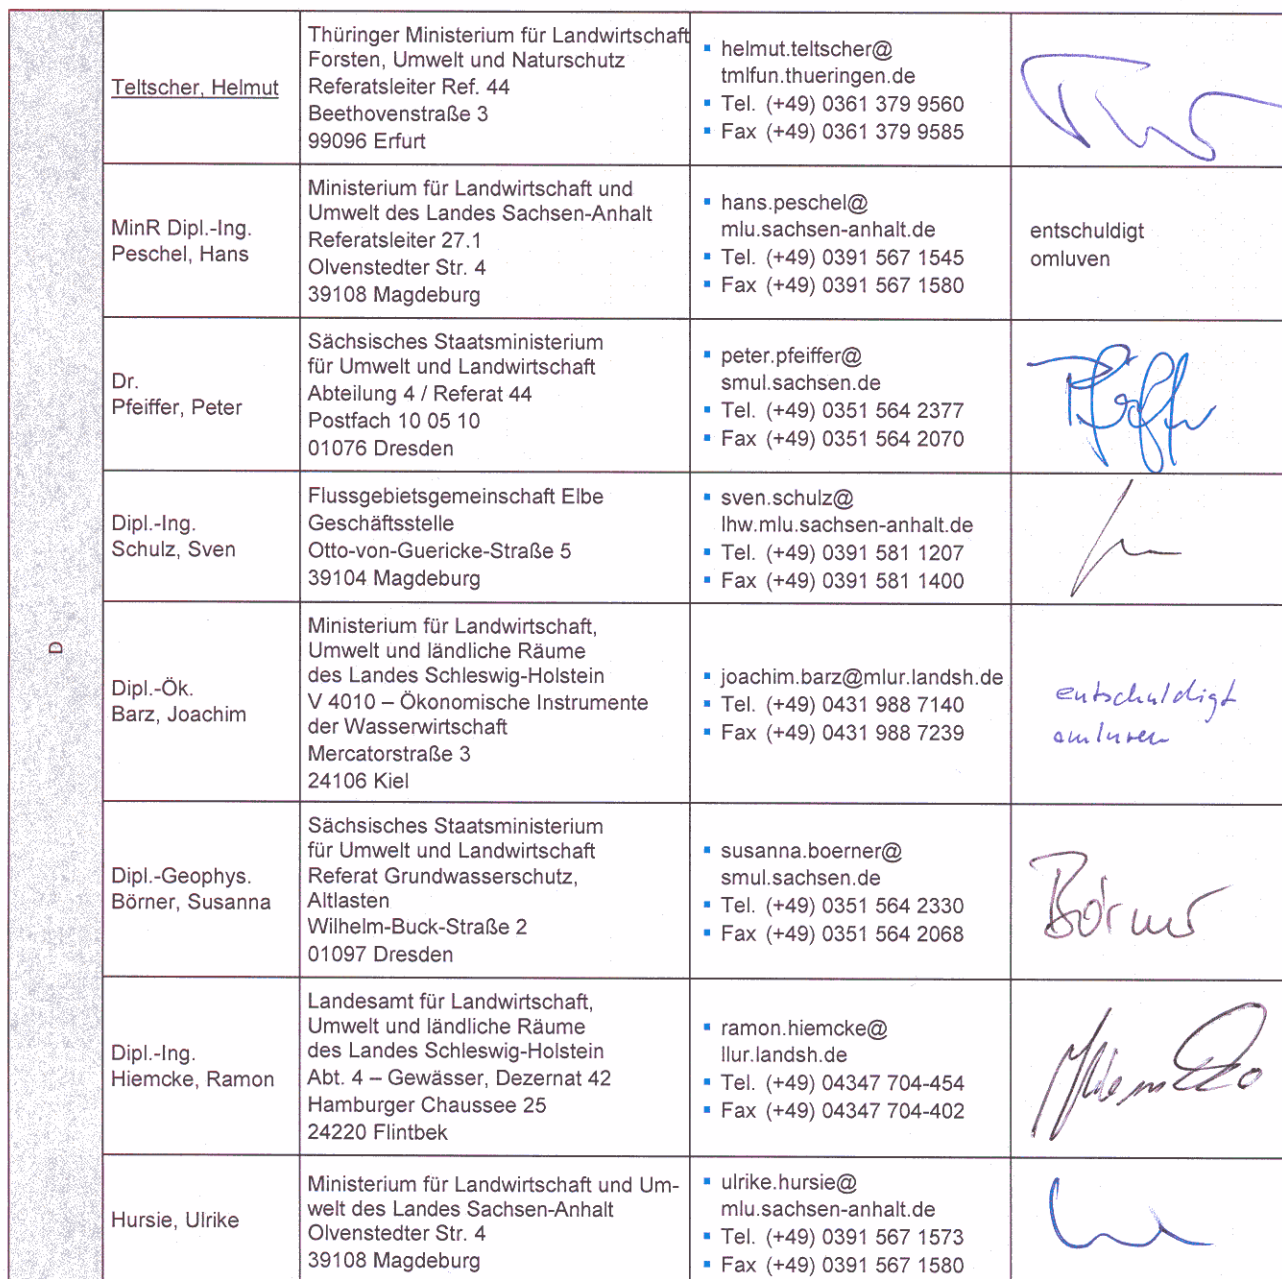 D
Teltscher, Helmut
Thüringer Ministerium für Landwirtschaft
Forsten, Umwelt und Naturschutz
Referatsleiter Ref. 44
Beethovenstraße 3
99096 Erfurt
▪ helmut.teltscher@
tmlfun.thueringen.de
▪ Tel. (+49) 0361 379 9560
▪ Fax (+49) 0361 379 9585
MinR Dipl.-Ing.
Peschel, Hans
Ministerium für Landwirtschaft und
Umwelt des Landes Sachsen-Anhalt
Referatsleiter 27.1
Olvenstedter Str. 4
39108 Magdeburg
▪ hans.peschel@
mlu.sachsen-anhalt.de
▪ Tel. (+49) 0391 567 1545
▪ Fax (+49) 0391 567 1580
entschuldigt
omluven
Dr.
Pfeiffer, Peter
Sächsisches Staatsministerium
für Umwelt und Landwirtschaft
Abteilung 4 / Referat 44
Postfach 10 05 10
01076 Dresden
▪ peter.pfeiffer@
smul.sachsen.de
▪ Tel. (+49) 0351 564 2377
▪ Fax (+49) 0351 564 2070
Dipl.-Ing.
Schulz, Sven
Flussgebietsgemeinschaft Elbe
Geschäftsstelle
Otto-von-Guericke-Straße 5
39104 Magdeburg
▪ sven.schulz@
lhw.mlu.sachsen-anhalt.de
▪ Tel. (+49) 0391 581 1207
▪ Fax (+49) 0391 581 1400
Dipl.-Ök.
Barz, Joachim
Ministerium für Landwirtschaft,
Umwelt und ländliche Räume
des Landes Schleswig-Holstein
V 4010 – Ökonomische Instrumente
der Wasserwirtschaft
Mercatorstraße 3
24106 Kiel
▪ joachim.barz@mlur.landsh.de
▪ Tel. (+49) 0431 988 7140
▪ Fax (+49) 0431 988 7239
entschuldigt
omluven
Dipl.-Geophys.
Börner, Susanna
Sächsisches Staatsministerium
für Umwelt und Landwirtschaft
Referat Grundwasserschutz,
Altlasten
Wilhelm-Buck-Straße 2
01097 Dresden
▪ susanna.boerner@
smul.sachsen.de
▪ Tel. (+49) 0351 564 2330
▪ Fax (+49) 0351 564 2068
Börner
Dipl.-Ing.
Hiemcke, Ramon
Landesamt für Landwirtschaft,
Umwelt und ländliche Räume
des Landes Schleswig-Holstein
Abt. 4 – Gewässer, Dezernat 42
Hamburger Chaussee 25
24220 Flintbek
▪ ramon.hiemcke@
llur.landsh.de
▪ Tel. (+49) 04347 704-454
▪ Fax (+49) 04347 704-402
Hursie, Ulrike
Ministerium für Landwirtschaft und Um-
welt des Landes Sachsen-Anhalt
Olvenstedter Str. 4
39108 Magdeburg
▪ ulrike.hursie@
mlu.sachsen-anhalt.de
▪ Tel. (+49) 0391 567 1573
▪ Fax (+49) 0391 567 1580